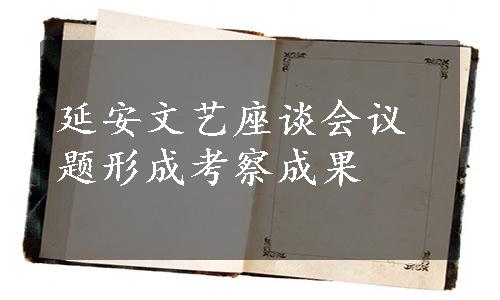 延安文艺座谈会议
题形成考察成果